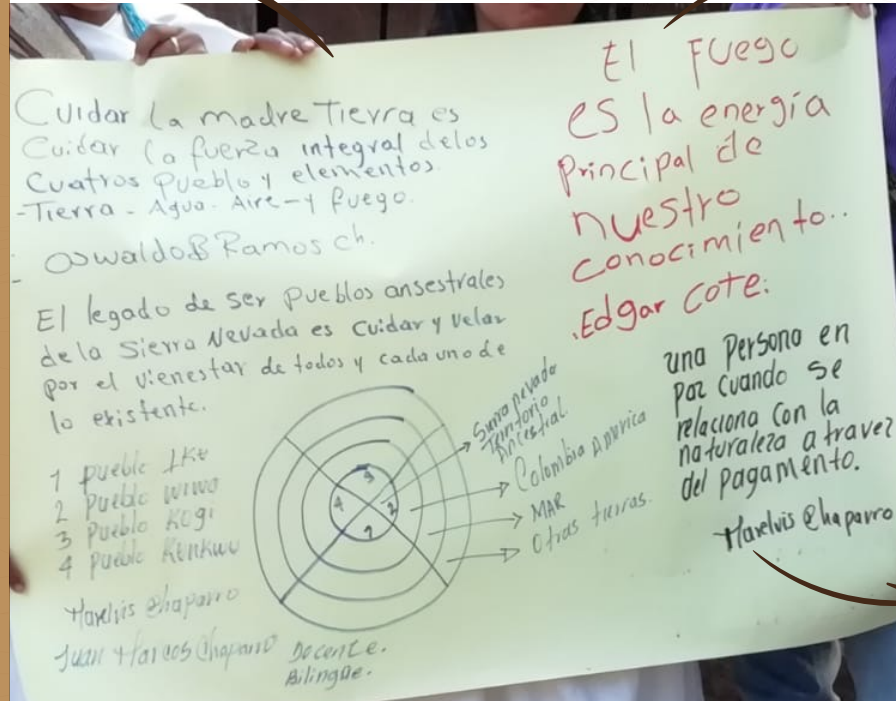 Cuidar la madre Tierra es
Cuidar la fuerza integral delos
Cuatros Pueblo y elementos.
-Tierra - Agua. Aire - y fuego.
- Oswaldo B Ramos ch.
El legado de ser Pueblos ansestrales
dela Sierra Nevada es cuidar y velar
por el vienestar de todos y cada uno de
lo existente.
1 Pueblo Iku
2 Pueblo wiwa
3 Pueblo Kogi
4 Pueblo
Marelvis Chaparro
Juan Marcos Chaparro Docente.
Bilingüe.
4
nevada
Territorio
Ancestral.
Colombia America
MAR
Otras tierras.
El Fuego
es la energía
Principal de
nuestro
conocimiento..
.Edgar Cote.
una Persona en
Paz cuando se
relaciona con la
naturaleza a travez
del pagamento.
Marelvis Chaparro